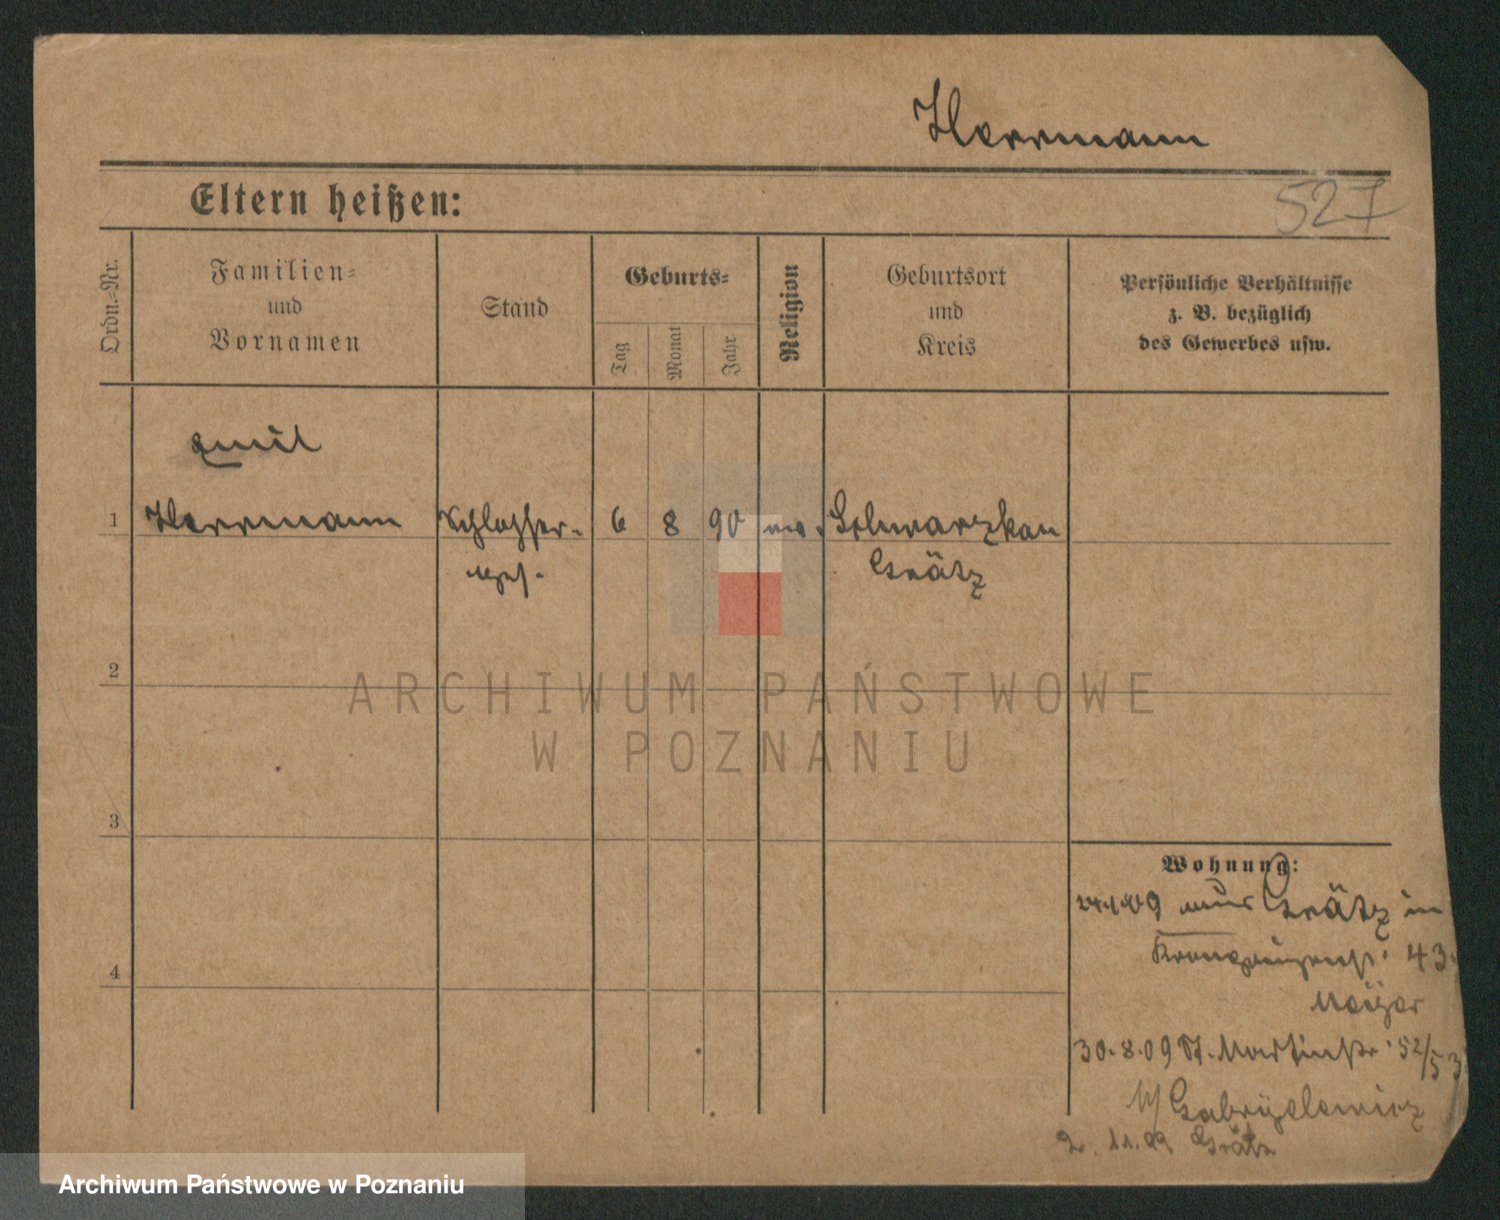 Herrmann
Eltern heißen:
527
Ordn.=Nr.
Familien=
und
Vornamen
Stand
Geburts=
Tag
Monat
Jahr
Religion
Geburtsort
und
Kreis
Persönliche Verhältnisse
z. B. bezüglich
des Gewerbes usw.
Emil
1 Herrmann Schlosser- 6 8 90 ev. Schwarzhau
ges. Grätz
2
3
4
Wohnung:
09 aus Grätz in
Kronprinzenstr. 43
30.8.09 St. Martinstr. 52/53
b/ Gabryelewicz
2.11.09 Grätz
ARCHIWUM PAŃSTWOWE
W POZNANIU
Archiwum Państwowe w Poznaniu